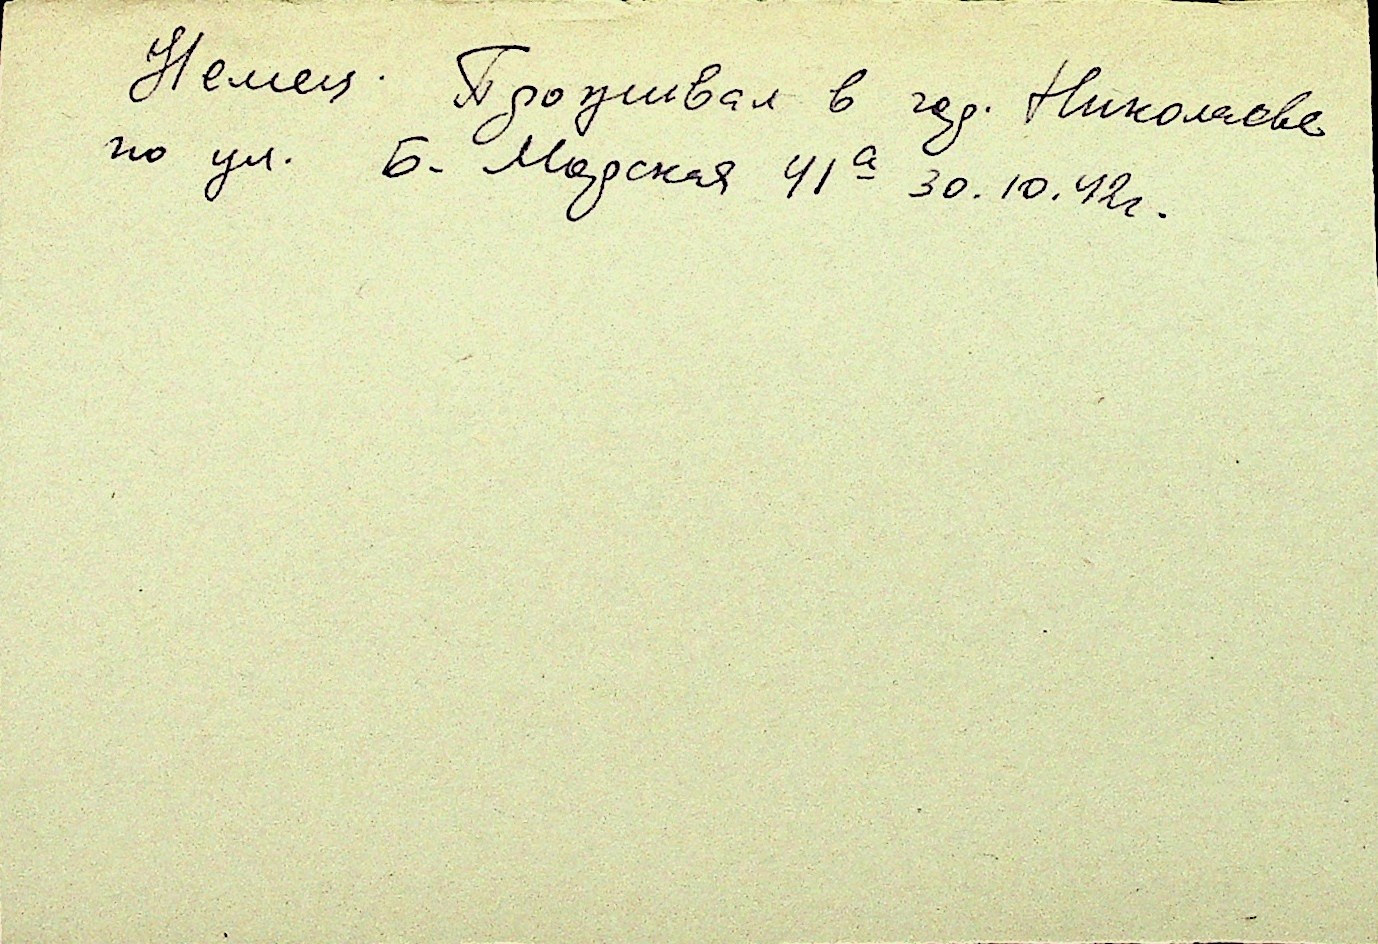 Немец. Проживал в гор. Николаеве
по ул. Б. Морская 41а 30.10.42г.